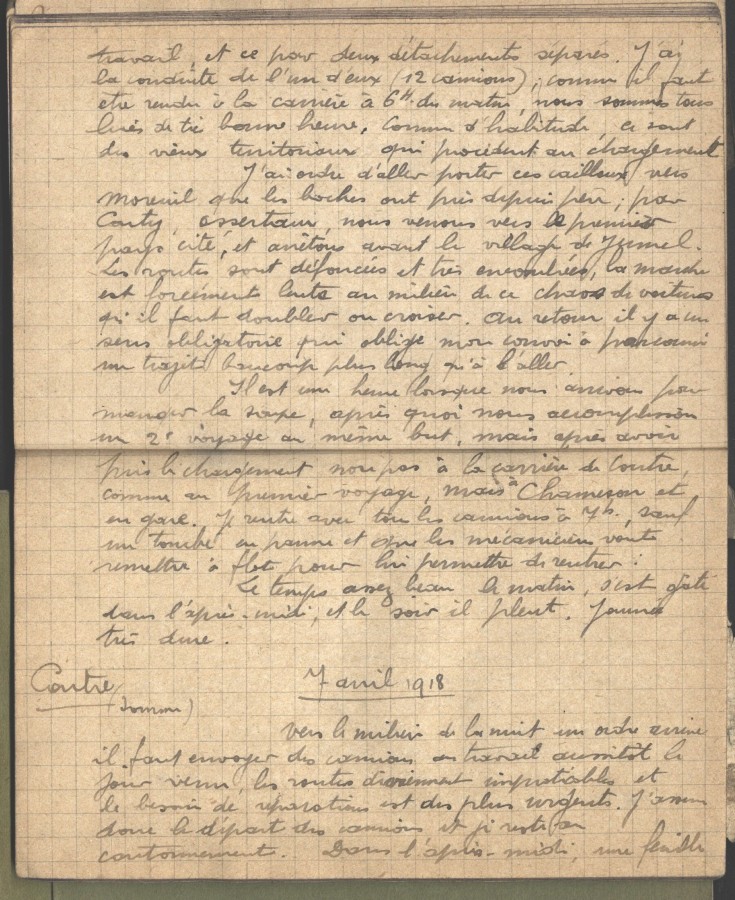 travail, et ce par deux détachements séparés. J'ai
la conduite de l'un d'eux (12 camions); comme il faut
etre rendu à la carrière à 6h. du matin, nous sommes tous
levés de très bonne heure. Comme d'habitude, ce sont
des vieux territoriaux qui procèdent au chargement
J'ai ordre d'aller porter ces cailloux vers
Moreuil que les boches ont pris depuis peu; par
Conty, Essertaux, nous venons vers le premier
pays cité, et arrêtons avant le village de Jumel.
Les routes sont défoncées et très encombrées, la marche
est forcément lente au milieu de ce chaos de voitures
qu'il faut doubler ou croiser. Au retour il y a un
sens obligatoire qui oblige mon convoi à parcourir
un trajet beaucoup plus long qu'à l'aller.
Il est une heure lorsque nous arrivons pour
manger la soupe, après quoi nous accomplissons
un 2e voyage au même but, mais après avoir
pris le chargement non pas à la carrière de Contre,
comme au premier voyage, mais à et
en gare. Je rentre avec tous les camions à 7h., sauf
un tombé en panne et que les mécaniciens vont
remettre à flot pour lui permettre de rentrer.
Le temps assez beau le matin, s'est gâté
dans l'après-midi, et le soir il pleut. Journée
très dure.
Contre 7 avril 1918
(Somme)
Vers le milieu de la nuit un ordre arrive
il faut envoyer des camions au travail aussitôt le
jour venu, les routes deviennent impraticables et
le besoin de réparations est des plus urgents. J'assure
donc le départ des camions et je reste au
cantonnement. Dans l'après-midi, une feuille